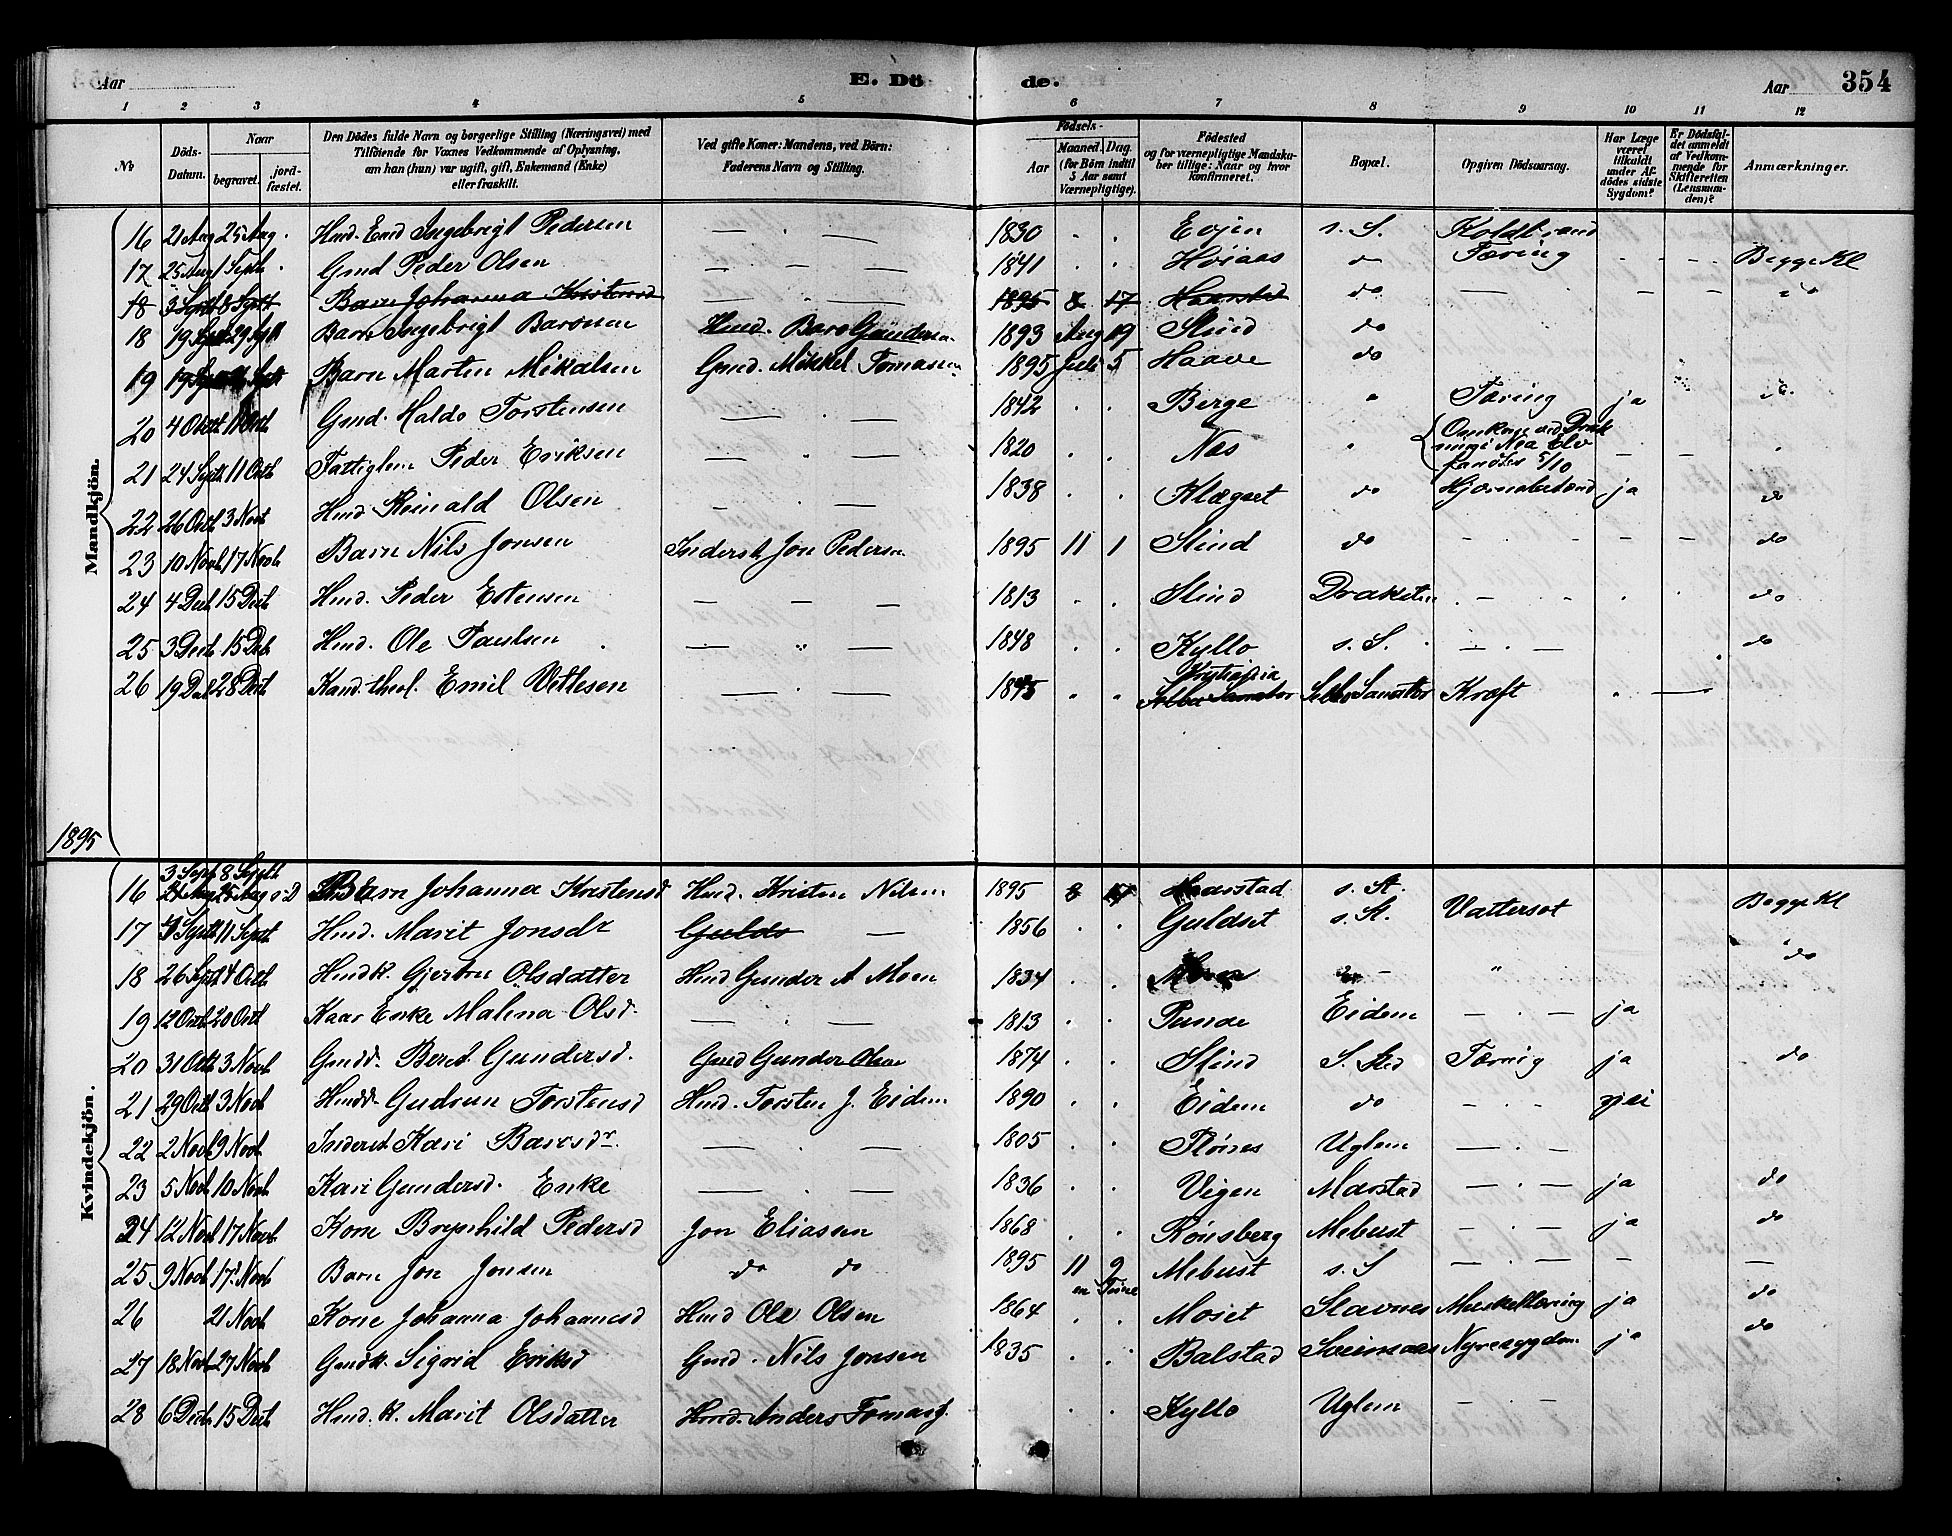 Aar
E. Dö
de.
Aar
354
1 2 3 4 5 6 7 8 9 10 11 12
№
Döds-Datum.
Naar
begravet.
jordfæstet.
Den Dödes fulde Navn og borgerlige Stilling (Næringsvei) med
Tilföiende for Voxnes Vedkommende af Oplysning,
om han (hun) var ugift, gift, Enkemand (Enke)
eller fraskilt.
Ved gifte Koner: Mandens, ved Börn:
Faderens Navn og Stilling.
Födsels-
Aar
Maaned. Dag.
(for Börn indtil
5 Aar samt
Værnepligtige).
Födested
og for værnepligtige Mandskaber tillige: Naar og hvor
konfirmeret.
Bopæl.
Opgiven Dödsaarsag.
Har Læge
været
tilkaldt
under Afdödes sidste
Sygdom?
Er Dödsfaldet anmeldt
af Vedkommende for
Skifteretten
(Lensmanden)?
Anmærkninger.
Mandkjön.
16 21 Aug 25 Aug. Hmd. Emd Ingebrigt Pedersen — . — 1830 . . Evjen s. S. Koldbrand
17 25 Aug 1 Septb. Gmd Peder Olsen — . — 1841 . . Høiaas do Tæring Begge Kl
18 3 Septb 8 Septb Barn Johanna Kristensd 1895 8 17 Haarstad do — do
18 19 Septb 29 Septb Barn Ingebrigt Barosen Hmd. Baro Gundersen 1893 Aug 19 Slind do
19 19 Septb Septb Barn Marten Mikalsen Gmd. Mikkel Tomasen 1895 Juli 5 Haave do
20 4 Octb 11 Octb Gmd. Haldo Torstensen — . — 1842 . . Berge " Tæring ja do
21 24 Septb 11 Octb Fattiglem Peder Eriksen — . — 1820 . . Næs " Omkom ved Drukning i Nea Elv fandtes 5/10 — —
22 26 Octb 3 Novb Hmd Reinald Olsen — . — 1838 . . Klægset do Hjernebetænd ja do
23 10 Novb 17 Novb Barn Nils Jonsen Inderst Jon Pedersen 1895 11 1 Slind do — . — do
24 4 Decb 15 Decb Hmd. Peder Estensen — — — 1813 . . Slind Draksten — . — do
25 3 Decb 15 Decb Hmd. Ole Paulsen — . — 1848 . . Kyllo s. S. — . — do
26 19 Decb 28 Decb Kand. theol. Emil Vettesen — . — 1845 . . Kristiania Selbu Sanator Selbu Sanator Kræft . —
1895
Kvindekjön.
16 3 Septb 8 Septb 21 Aug 25 Aug Barn Johanna Kristensd Hmd. Kristen Nilsen 1895 8 17 Haarstad s. St.
17 4 Septb 11 Septb Hmd. Marit Jonsdr Guldo — 1856 . . Guldset s. St. Vattersot Begge Kl
18 26 Septb 4 Octb Hmdk. Gjertru Olsdatter Hmd Gunder A Moen 1834 . . Moen " do
19 12 Octb 20 Octb Kaar Enke Malena Olsd. — . — 1813 . . Punde Eidem — . — ja
20 31 Octb 3 Novb Gmdd. Beret Gundersd. Gmd Gunder Olsen 1874 . . Slind S. Sted Tæring ja do
21 29 Octb 3 Novb Hmdd. Gudrun Torstensd Hmd. Torsten J. Eidem 1890 . . Eidem do — . — nei
22 2 Novb 9 Novb Inderst Kari Barosdr. — — 1805 . . Rønes Uglem — . —
23 5 Novb 10 Novb Kari Gundersd. Enke — . — 1836 . . Vigen Marstad — . — ja do
24 12 Novb 17 Novb Kone Brynhild Pedersd Jon Eliasen 1868 . . Rønsberg Mebust — . — ja do
25 9 Novb 17 Novb Barn Jon Jonsen do do 1895 11 9 en Time Mebust s. S — . — — —
26 21 Novb Kone Johanna Johannesd Hmd Ole Olsen 1864 . . Moset Stavnes Muskeltæring ja do
27 18 Novb 27 Novb Gmdk. Sigrid Eriksd Gmd. Nils Jonsen 1835 . . Balstad Sveinaas Nyresygdom ja do
28 6 Decb 15 Decb Hmd. k. Marit Olsdatter Hmd. Anders Tomas . . Kyllo Uglem — . —